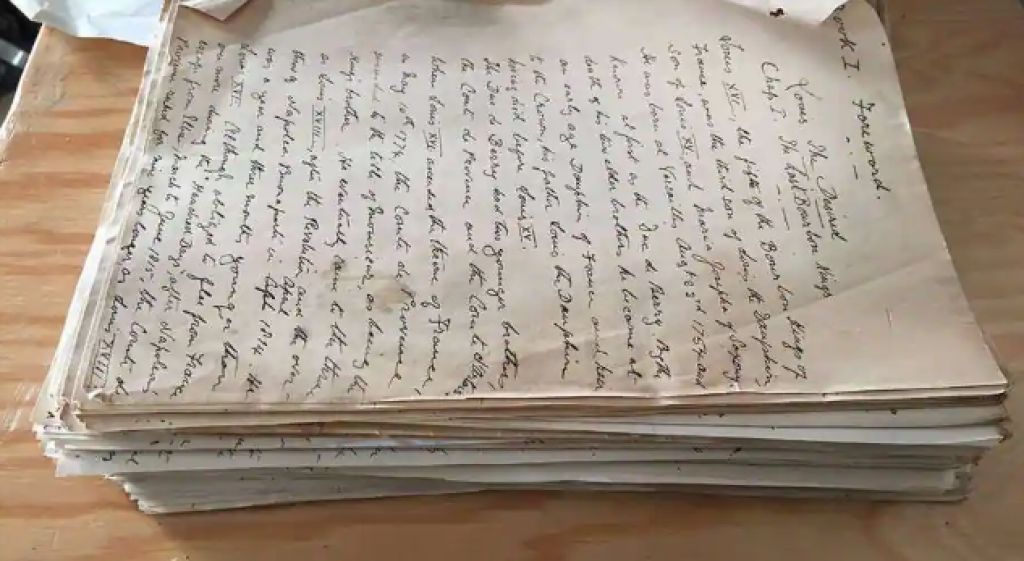 Book I. Foreword.
Louis The Desired
Chap I. The Last Bourbon Kings
Louis XVI, the fifth of the Bourbon Kings of
France, was the third son of Louis, the Dauphin
Son of Louis XV, and Maria Josepha of Saxony
He was born at Versailles Aug 23rd 1754 and
Known at first as the Duc de Berry By the
death of his two elder brothers he became at
an early age Dauphin of France and heir
to the Crown, his father Louis the Dauphin
having died before Louis XV.
The Duc de Berry had two younger brothers
the Comte de Provence and the Comte d'Artois
When Louis XVI ascended the throne of France,
in May 10th 1774, the Comte de Provence,
succeeded to the title of Monsieur, as being the
King's brother. He eventually came to the throne
as Louis XVIII, after the Revolution and the over-
throw Napoleon Buonaparte in April 1814. He
was a year and three months younger than
Louis XVI. Although obliged to flee from France
once more during the Hundred Days after Napoleon's
escape from Elba, March to June 1815; the Comte de
Provence ruled for nine years longer as Louis XVIII